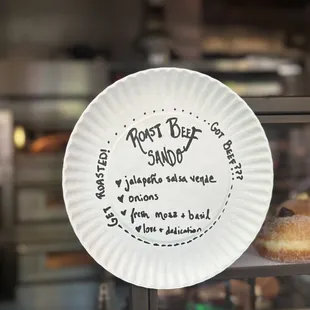 ROAST BEEF
SANDO
GET ROASTED!
GOT BEEF???
♥ jalapeño salsa verde
♥ onions
♥ fresh mozz + basil
♥ love + dedication